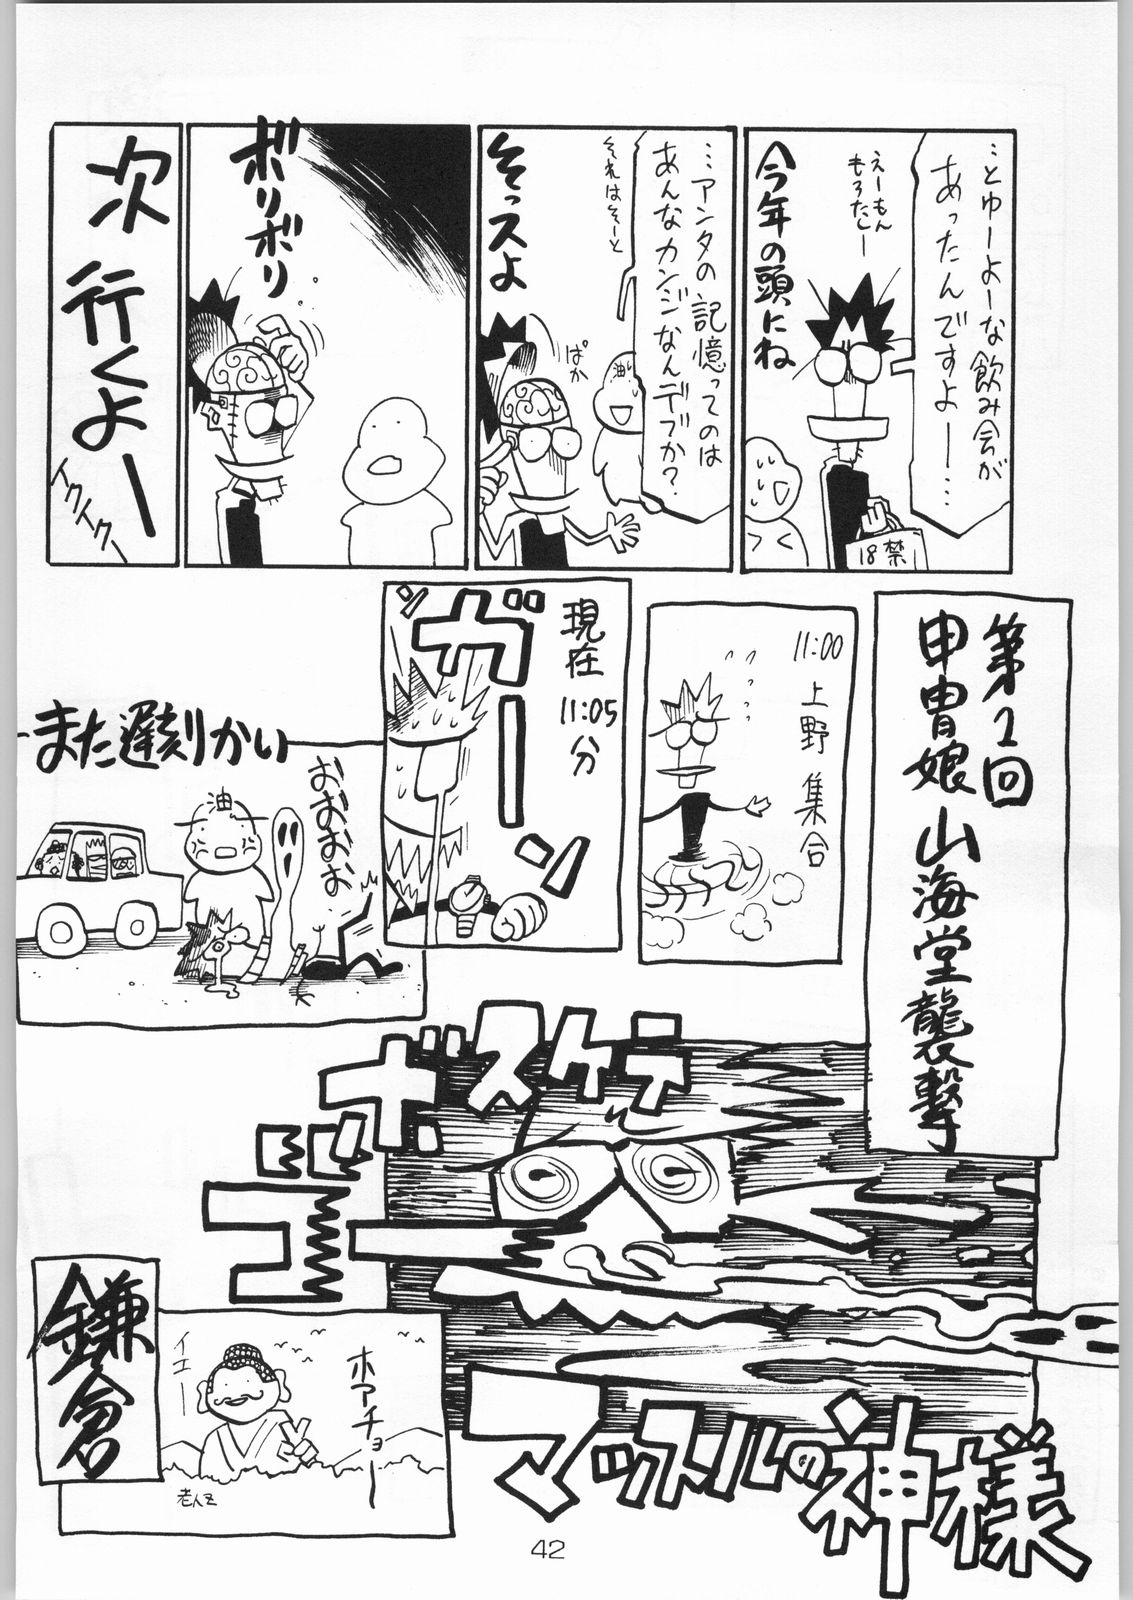 …とゆーよーな飲み会が
あったんですよー…
えーもん
もろたしー
今年の頭にね
18禁
…アンタの記憶っては
あんなカンジなんデスか？
それはそーと
油
ぱか
そっスよ
ボリボリ
次行くよー
イクイクー
第2回
甲冑娘山海堂襲撃
11:00
上野集合
現在
11:05分
ガーーン
また遅刻かい
油
おおおお
ボスケテ
ゴッド
マッスルの神様
鎌倉
イエー
ホアチョー
老人Z
42